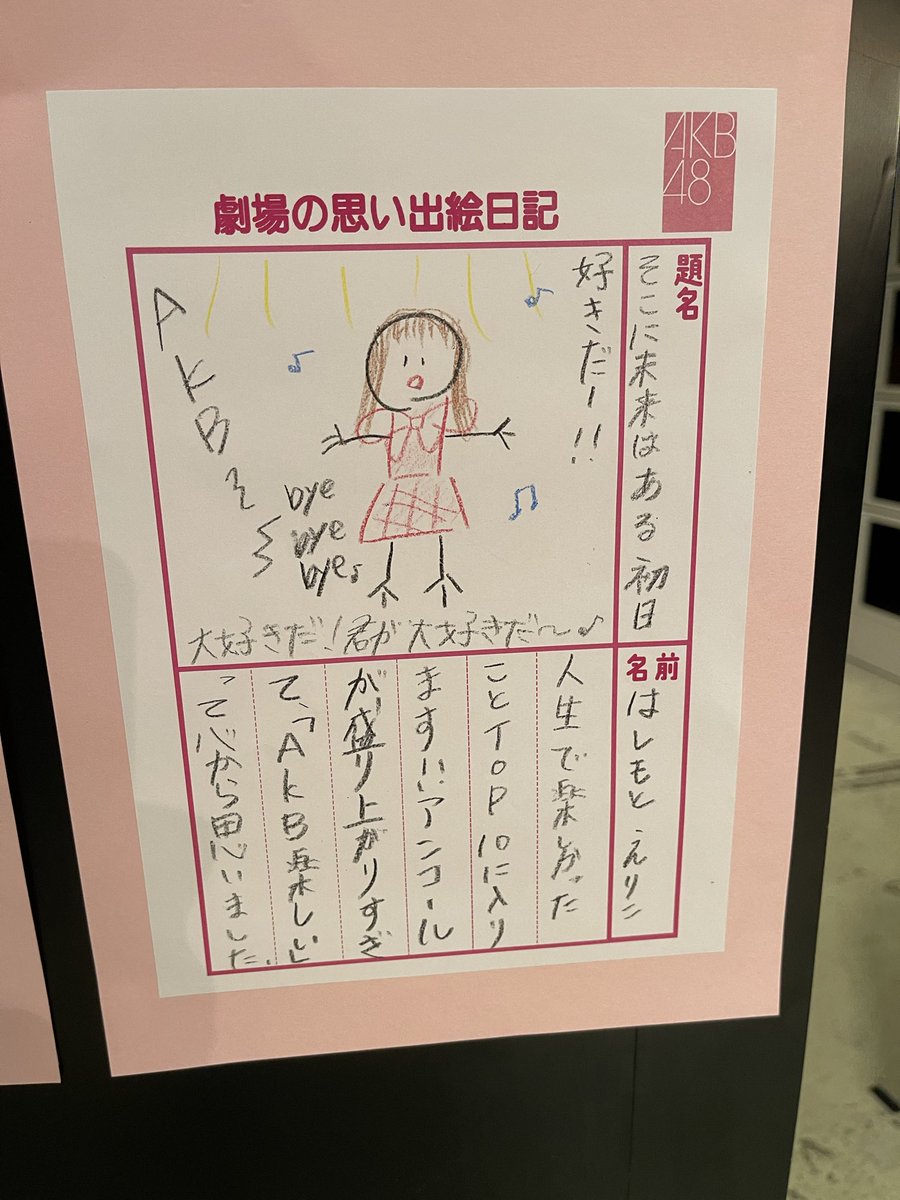 AKB
48
劇場の思い出絵日記
題名
そこに未来はある初日
名前
はしもと えりン
好きだー!!
AKB
bye
bye
bye
大好きだ!君が大好きだ〜♪
人生で楽しかった
ことTOP10に入り
ます!!アンコール
が、盛り上がりすぎ
て、「AkB楽しい」
って心から思いました.